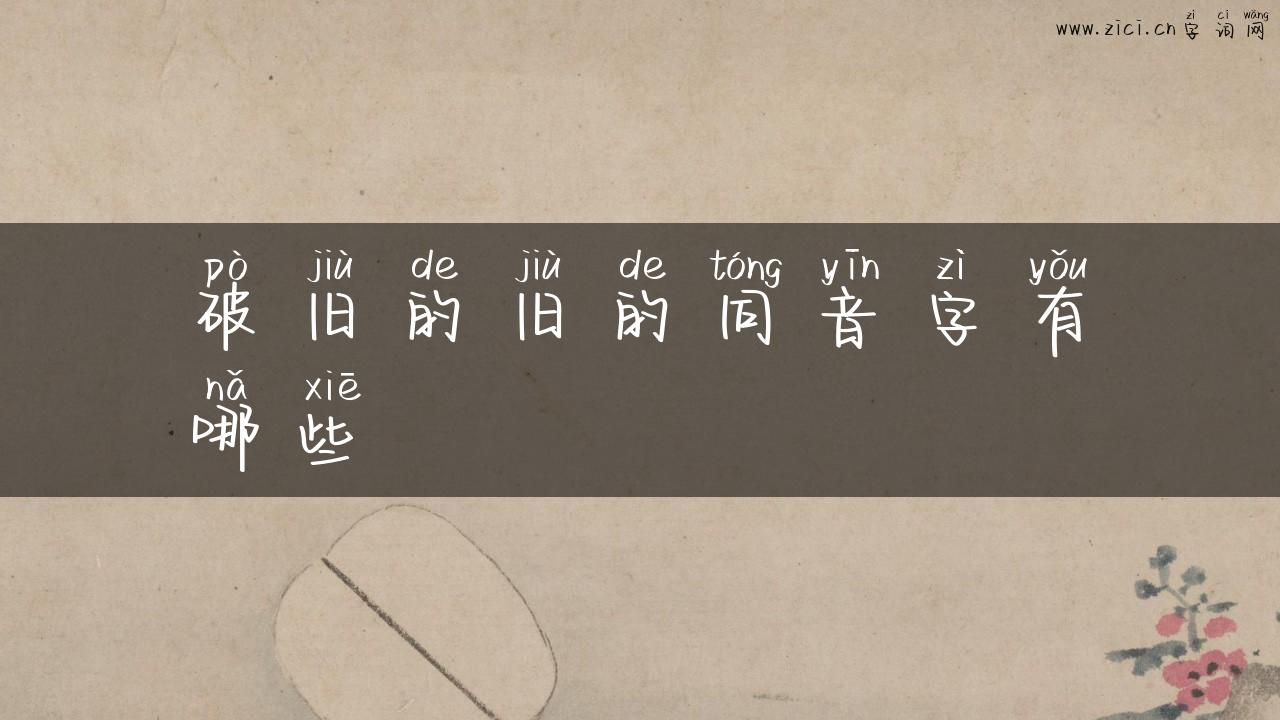 zì cí wǎng
www.zici.cn 字词网
pò jiù de jiù de tóng yīn zì yǒu
破旧的旧的同音字有
nǎ xiē
哪些